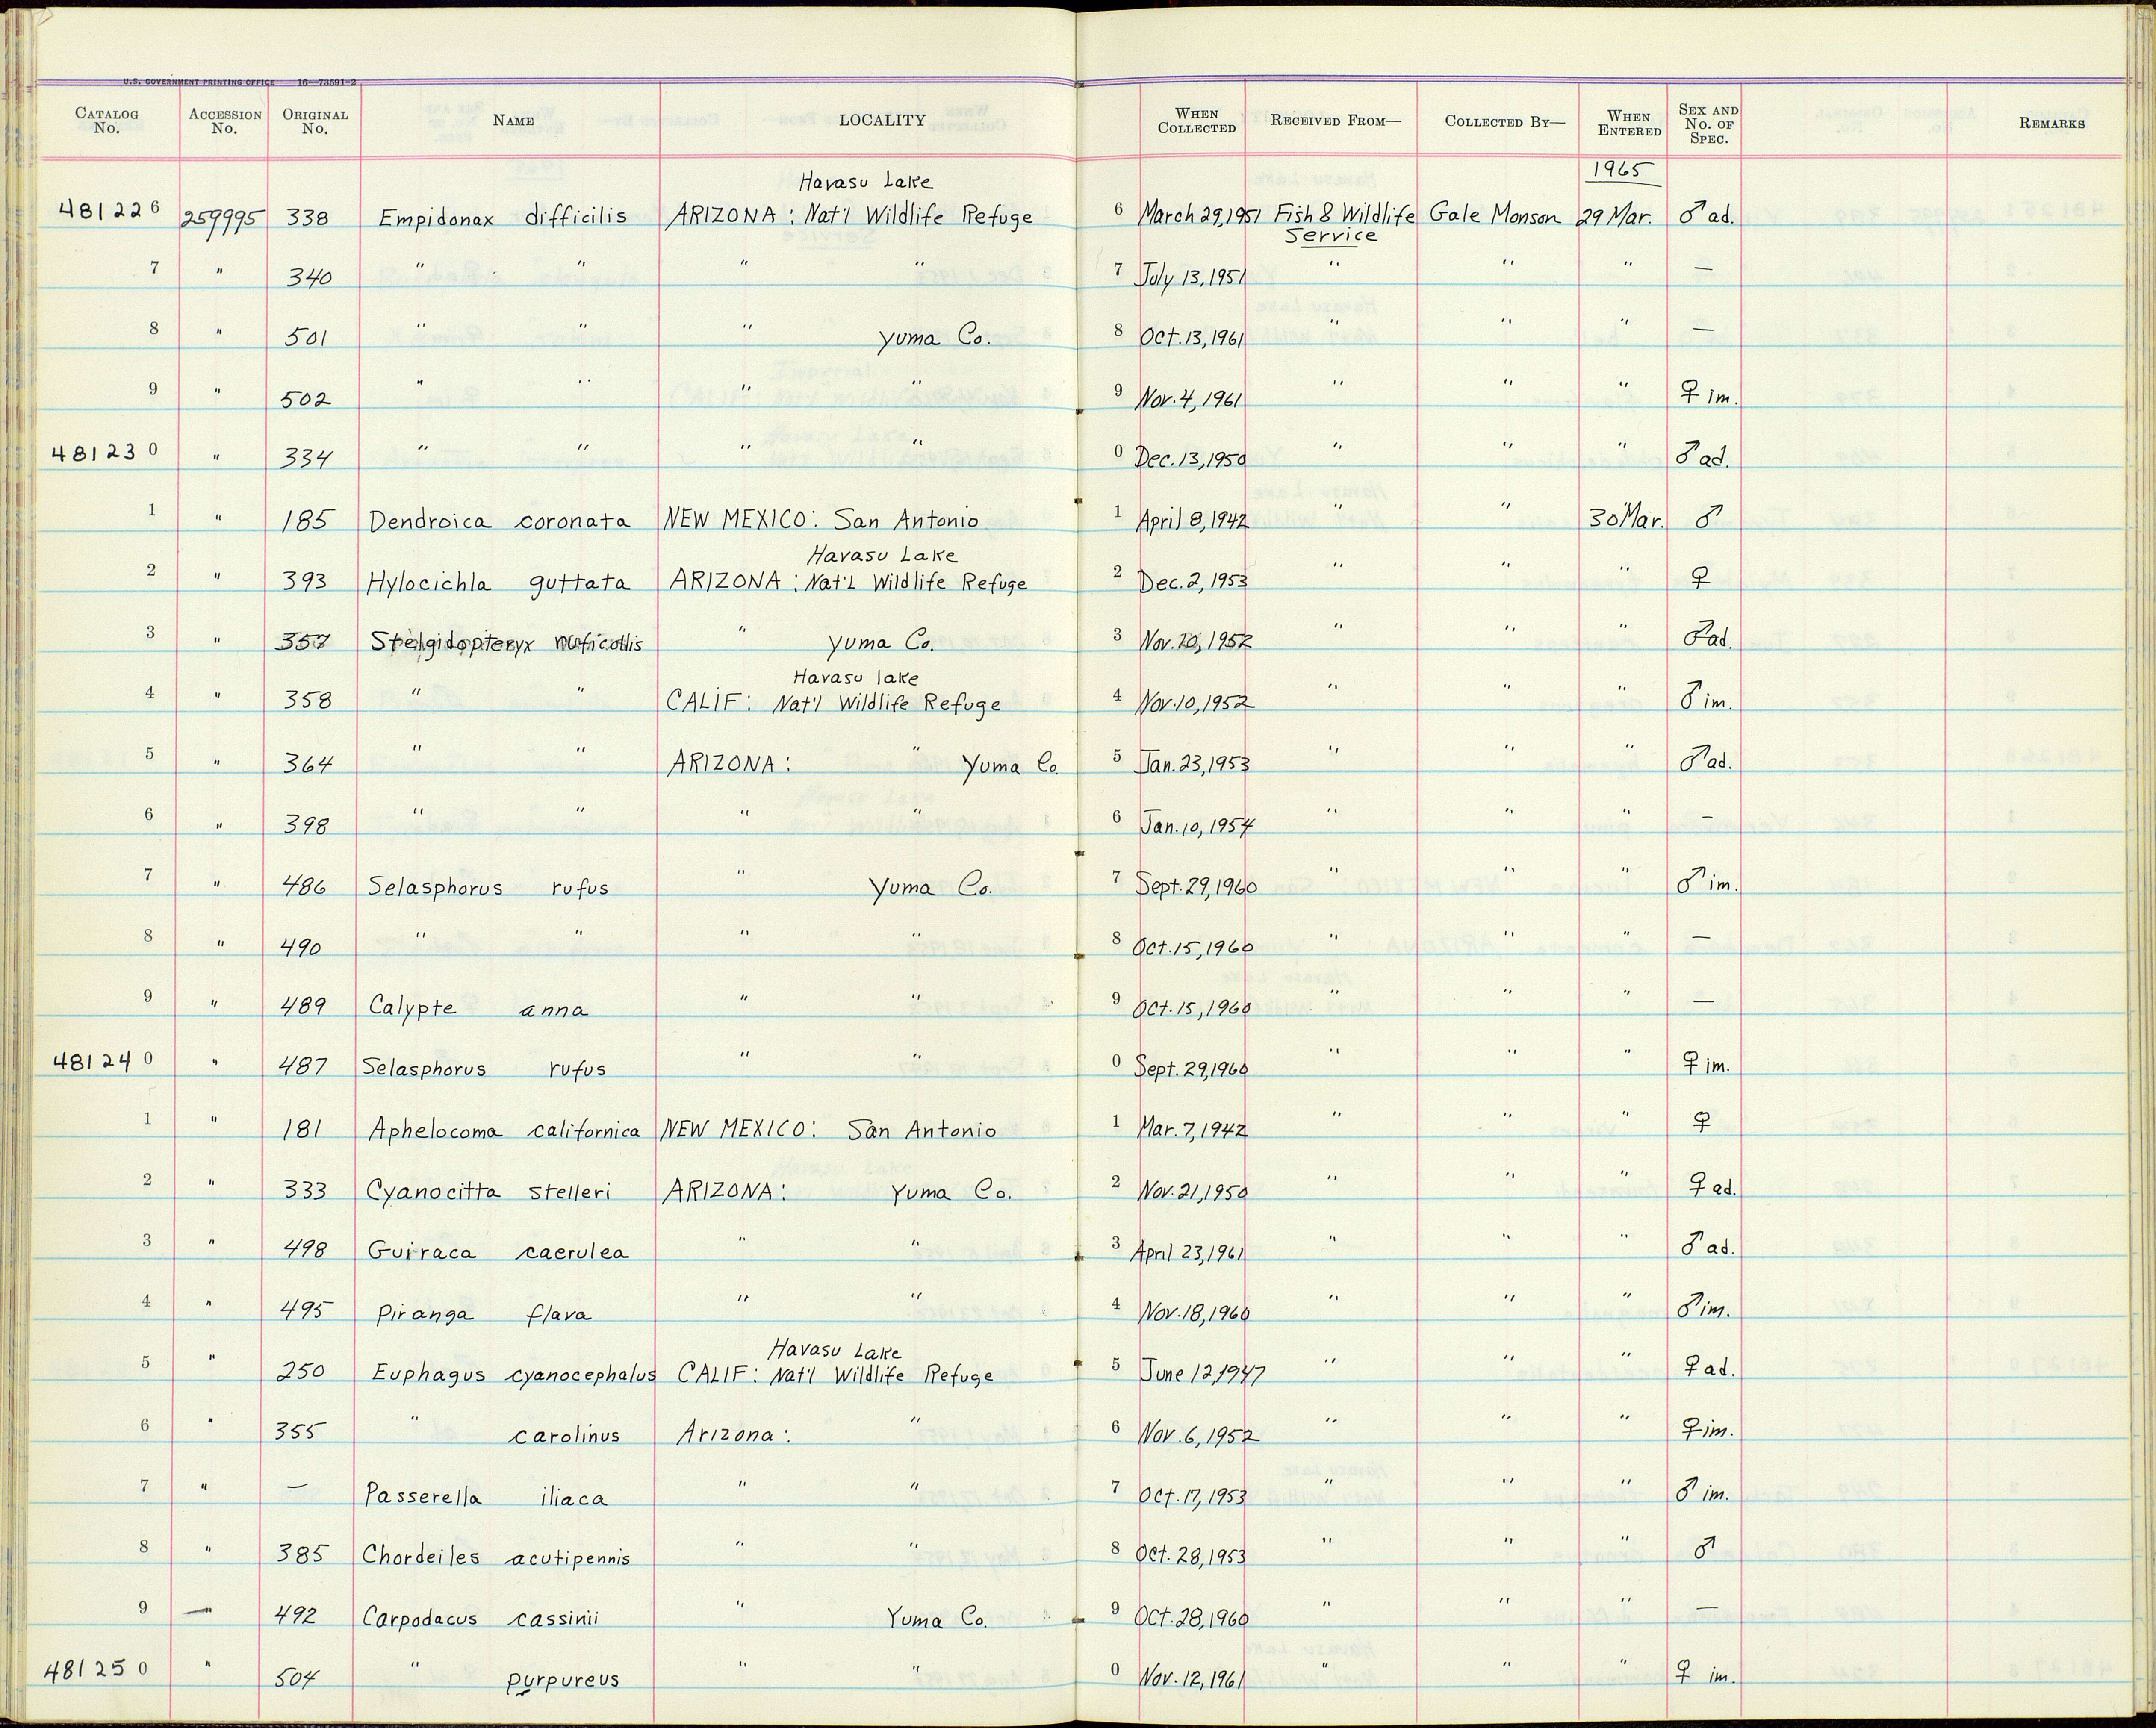 U.S. GOVERNMENT PRINTING OFFICE 16—73591-2
CATALOG No. ACCESSION No. ORIGINAL No. NAME LOCALITY WHEN COLLECTED RECEIVED FROM— COLLECTED BY— WHEN ENTERED SEX AND No. OF SPEC. REMARKS
1965
Havasu Lake
481226 259995 338 Empidonax difficilis ARIZONA: Nat'l Wildlife Refuge 6 March 29, 1951 Fish & Wildlife Gale Monson 29 Mar. ♂ ad.
Service
7 " 340 " " " " 7 July 13, 1951 " " " —
8 " 501 " " " Yuma Co. 8 Oct. 13, 1961 " " " —
9 " 502 " " " " 9 Nov. 4, 1961 " " " ♀ im.
481230 " 334 " " " " 0 Dec. 13, 1950 " " " ♂ ad.
1 " 185 Dendroica coronata NEW MEXICO: San Antonio 1 April 8, 1942 " " 30 Mar. ♂
Havasu Lake
2 " 393 Hylocichla guttata ARIZONA: Nat'l Wildlife Refuge 2 Dec. 2, 1953 " " " ♀
3 " 357 Stelgidopteryx ruficollis " Yuma Co. 3 Nov. 10, 1952 " " " ♂ ad.
Havasu lake
4 " 358 " " CALIF: Nat'l Wildlife Refuge 4 Nov. 10, 1952 " " " ♂ im.
5 " 364 " " ARIZONA: " Yuma Co. 5 Jan. 23, 1953 " " " ♂ ad.
6 " 398 " " " " 6 Jan. 10, 1954 " " " —
7 " 486 Selasphorus rufus " Yuma Co. 7 Sept. 29, 1960 " " " ♂ im.
8 " 490 " " " " 8 Oct. 15, 1960 " " " —
9 " 489 Calypte anna " " 9 Oct. 15, 1960 " " " —
481240 " 487 Selasphorus rufus " " 0 Sept. 29, 1960 " " " ♀ im.
1 " 181 Aphelocoma californica NEW MEXICO: San Antonio 1 Mar. 7, 1942 " " " ♀
2 " 333 Cyanocitta stelleri ARIZONA: Yuma Co. 2 Nov. 21, 1950 " " " ♀ ad.
3 " 498 Guiraca caerulea " " 3 April 23, 1961 " " " ♂ ad.
4 " 495 Piranga flava " " 4 Nov. 18, 1960 " " " ♂ im.
Havasu Lake
5 " 250 Euphagus cyanocephalus CALIF: Nat'l Wildlife Refuge 5 June 12, 1947 " " " ♀ ad.
6 " 355 " carolinus Arizona: " 6 Nov. 6, 1952 " " " ♀ im.
7 " — Passerella iliaca " " 7 Oct. 17, 1953 " " " ♂ im.
8 " 385 Chordeiles acutipennis " " 8 Oct. 28, 1953 " " " ♂
9 — 492 Carpodacus cassinii " Yuma Co. 9 Oct. 28, 1960 " " " —
481250 " 504 " purpureus " " 0 Nov. 12, 1961 " " " ♀ im.